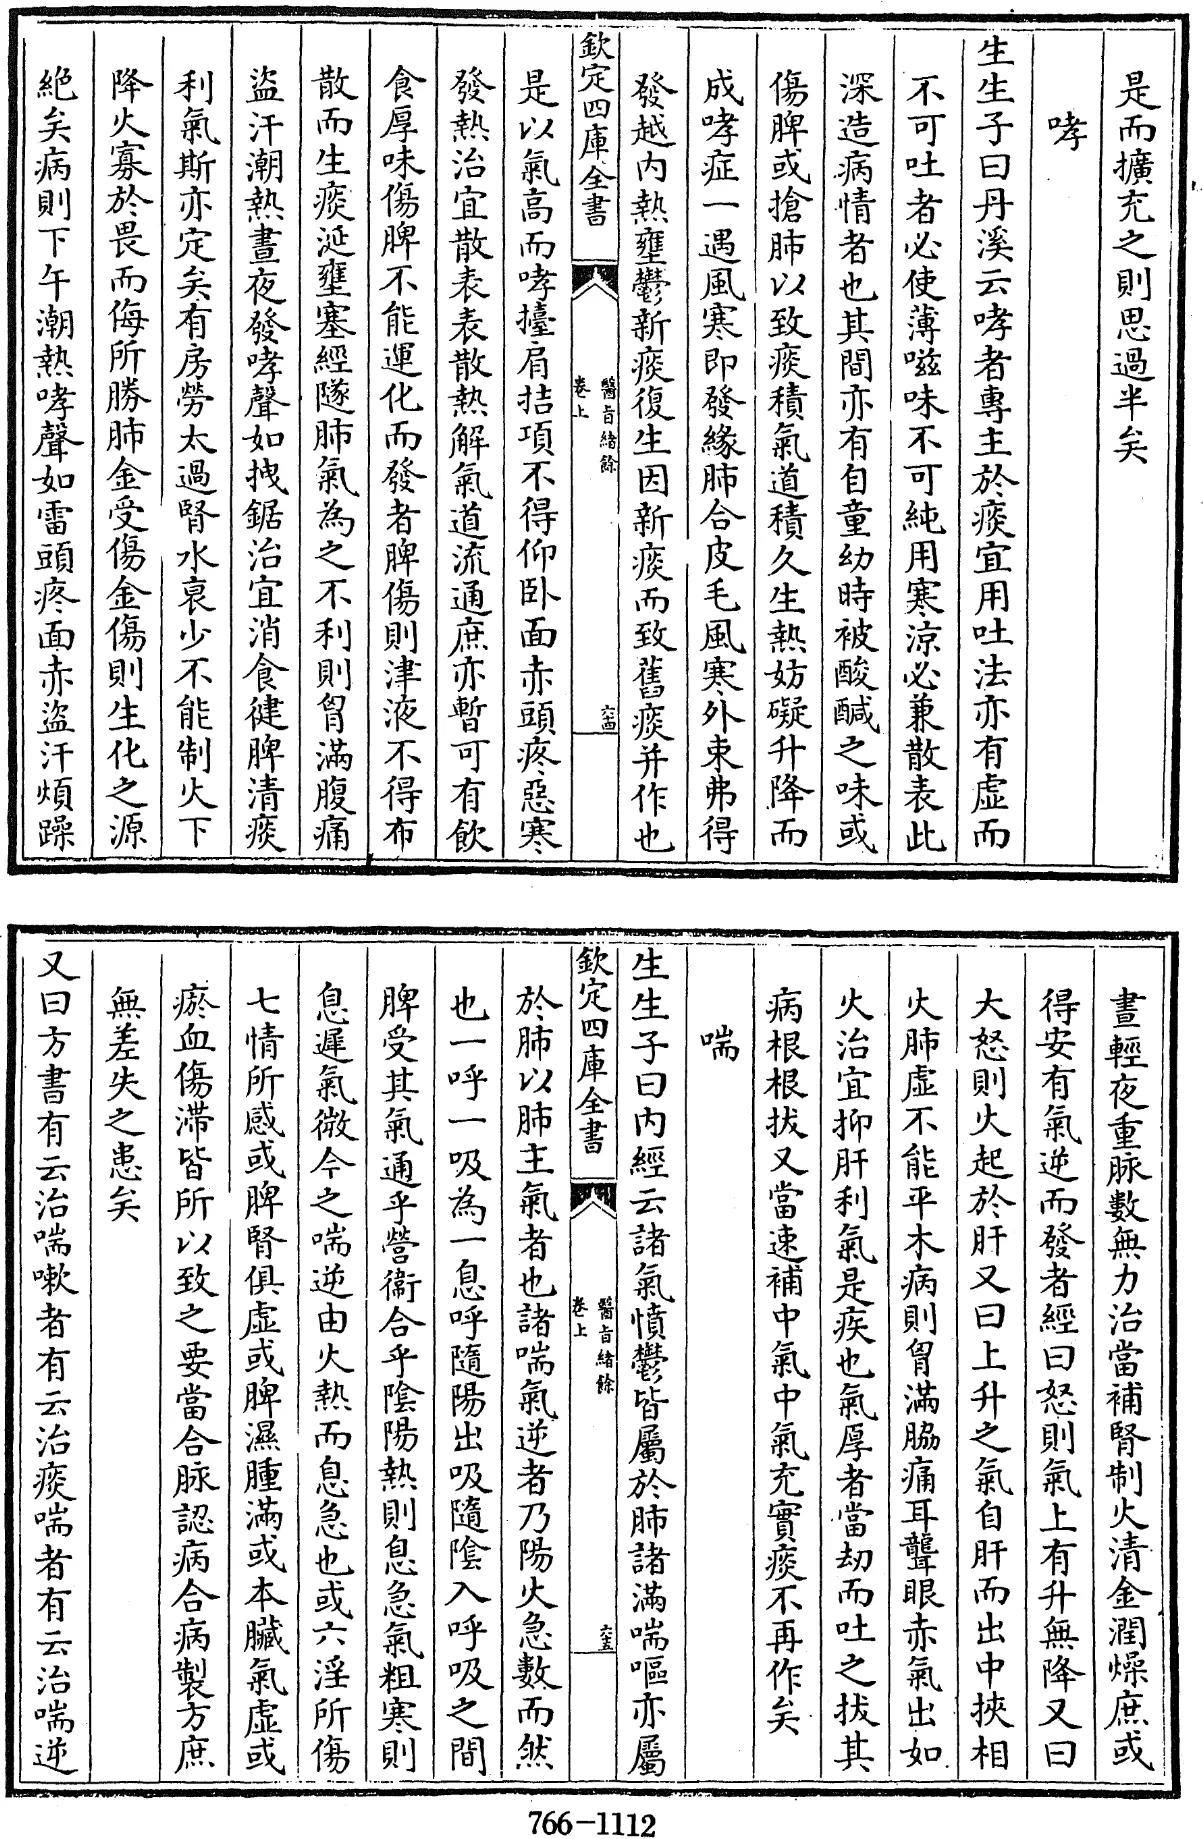 是而擴充之則思過半矣
哮
生生子曰丹溪云哮者專主於痰宜用吐法亦有虛而
不可吐者必使薄滋味不可純用寒涼必兼散表此
深造病情者也其間亦有自童幼時被酸鹹之味或
傷脾或搶肺以致痰積氣道積久生熱妨礙升降而
成哮症一遇風寒即發緣肺合皮毛風寒外束弗得
發越內熱壅鬱新痰復生因新痰而致舊痰并作也
欽定四庫全書
醫旨緒餘
卷上
六四
是以氣高而哮擡肩拮項不得仰卧面赤頭疼惡寒
發熱治宜散表表散熱解氣道流通庶亦暫可有飲
食厚味傷脾不能運化而發者脾傷則津液不得布
散而生痰涎壅塞經隧肺氣為之不利則胷滿腹痛
盜汗潮熱晝夜發哮聲如拽鋸治宜消食健脾清痰
利氣斯亦定矣有房勞太過腎水衰少不能制火下
降火寡於畏而侮所勝肺金受傷金傷則生化之源
絕矣病則下午潮熱哮聲如雷頭疼面赤盜汗煩躁
晝輕夜重脉數無力治當補腎制火清金潤燥庶或
得安有氣逆而發者經曰怒則氣上有升無降又曰
大怒則火起於肝又曰上升之氣自肝而出中挾相
火肺虛不能平木病則胷滿脇痛耳聾眼赤氣出如
火治宜抑肝利氣是疾也氣厚者當劫而吐之拔其
病根根拔又當速補中氣中氣充實痰不再作矣
喘
生生子曰內經云諸氣憤鬱皆屬於肺諸滿喘嘔亦屬
欽定四庫全書
醫旨緒餘
卷上
六五
於肺以肺主氣者也諸喘氣逆者乃陽火急數而然
也一呼一吸為一息呼隨陽出吸隨陰入呼吸之間
脾受其氣通乎營衞合乎陰陽熱則息急氣粗寒則
息遲氣微今之喘逆由火熱而息急也或六淫所傷
七情所感或脾腎俱虛或脾濕腫滿或本臟氣虛或
瘀血傷滯皆所以致之要當合脉認病合病製方庶
無差失之患矣
又曰方書有云治喘嗽者有云治痰喘者有云治喘逆
766-1112